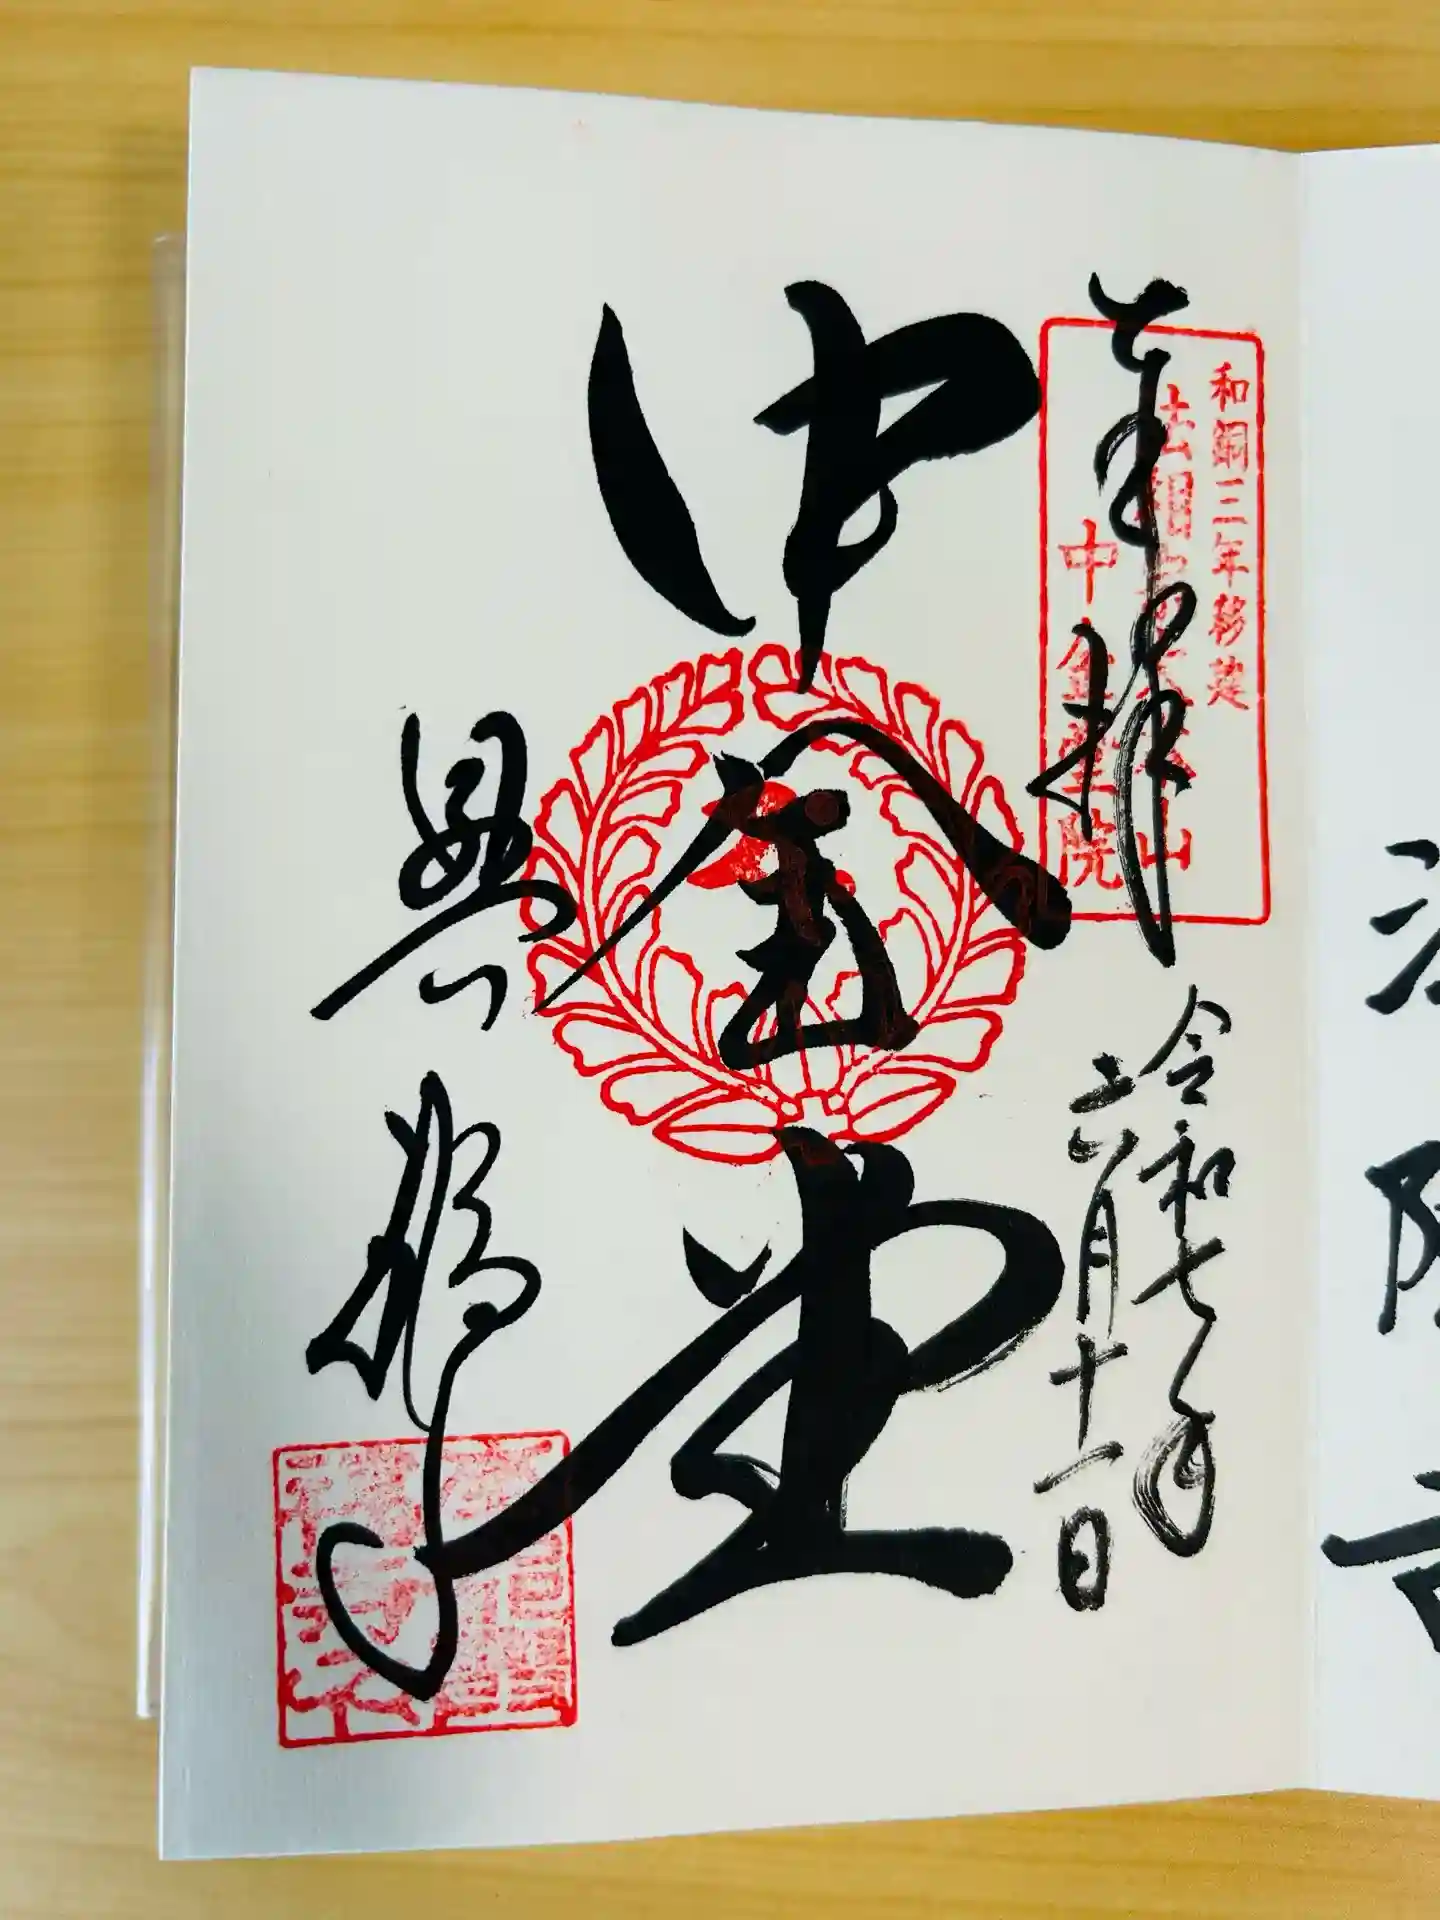 奉拝
和銅三年移建
法相宗大本山
中金堂院
令和七年
六月十一日
中金堂
興福寺